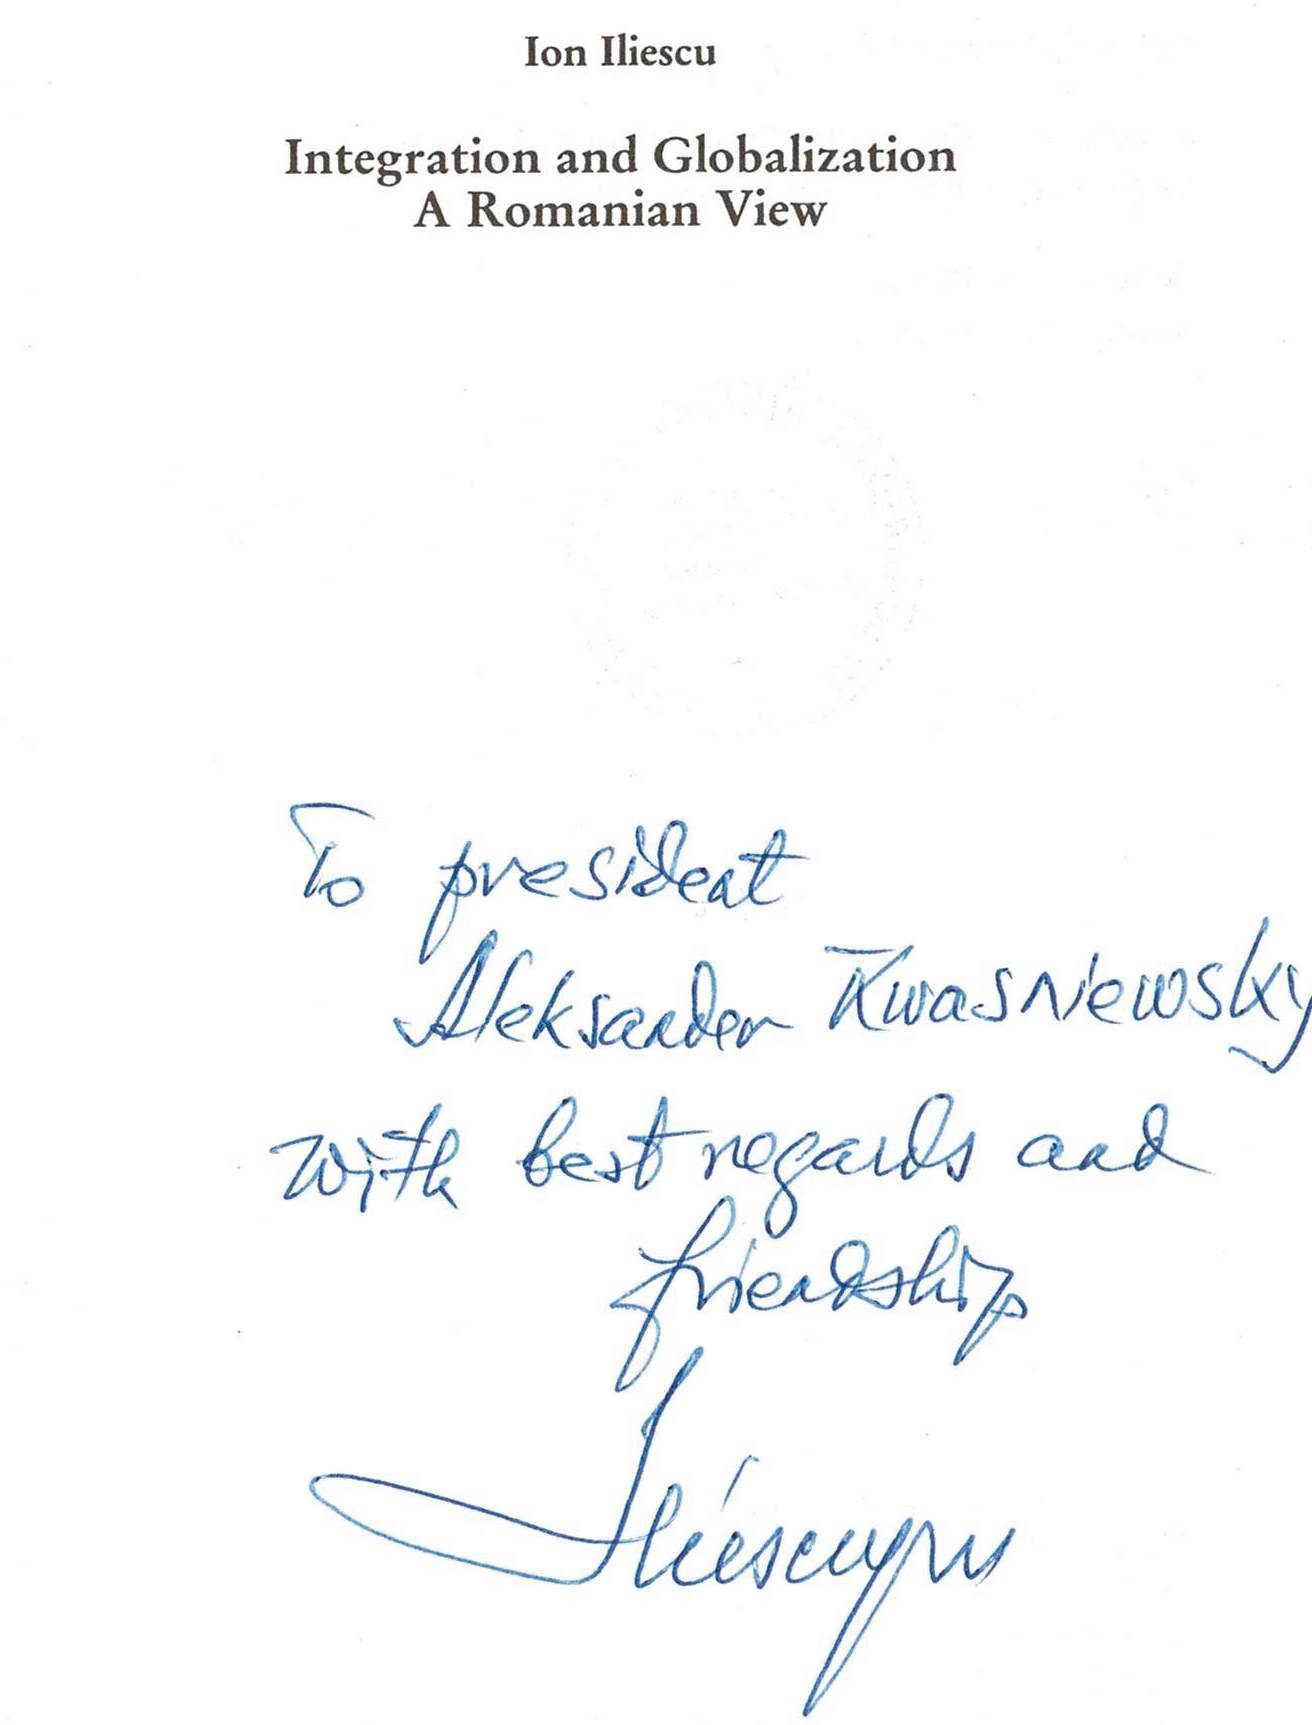 Ion Iliescu
Integration and Globalization
A Romanian View
To president
Aleksander Kwasniewsky
with best regards and
friendship
Iliescu